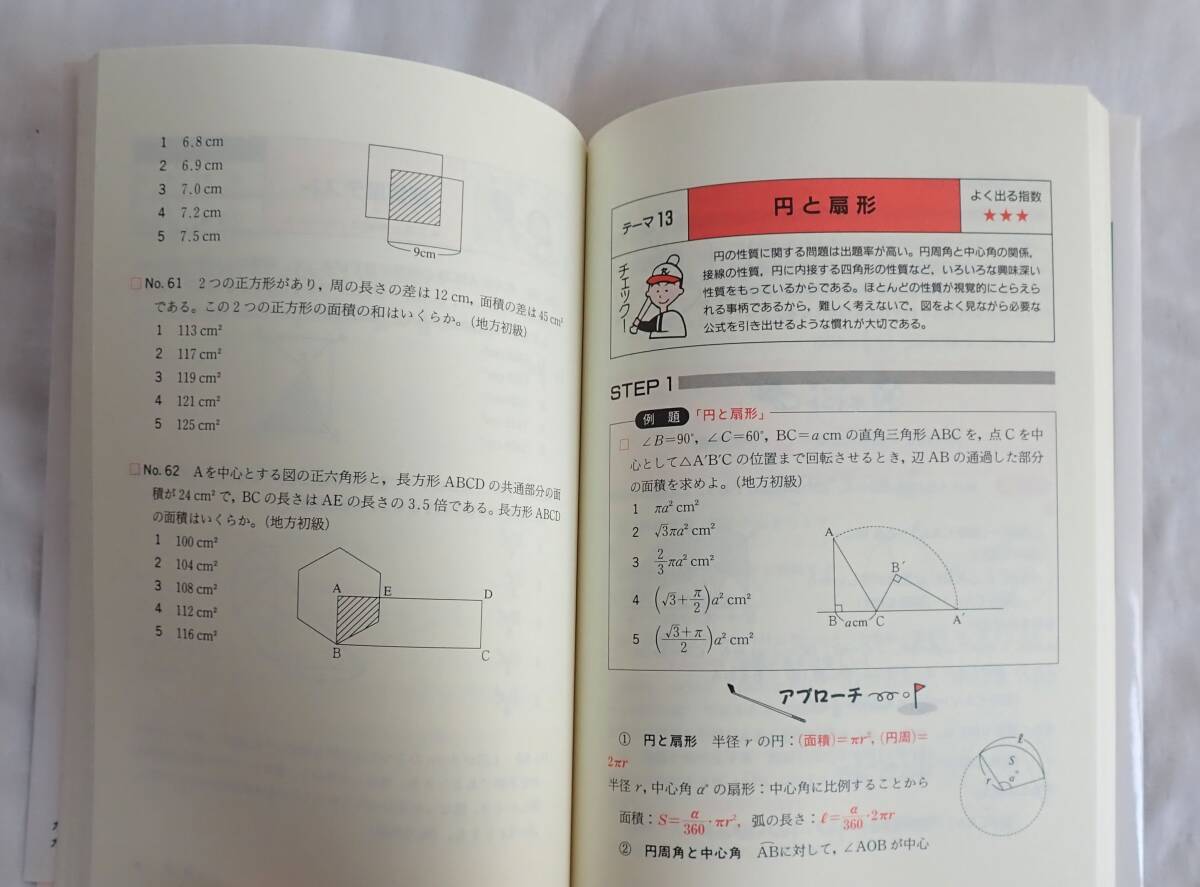 1 6.8 cm
2 6.9 cm
3 7.0 cm
4 7.2 cm
5 7.5 cm
9cm
□No.61 2つの正方形があり，周の長さの差は12 cm，面積の差は45 cm²
である。この2つの正方形の面積の和はいくらか。（地方初級）
1 113 cm²
2 117 cm²
3 119 cm²
4 121 cm²
5 125 cm²
□No.62 Aを中心とする図の正六角形と，長方形ABCDの共通部分の面
積が24 cm²で，BCの長さはAEの長さの3.5倍である。長方形ABCD
の面積はいくらか。（地方初級）
1 100 cm²
2 104 cm²
3 108 cm²
4 112 cm²
5 116 cm²
A
E
D
B
C
テーマ13
円と扇形
よく出る指数
★★★
チェック！
円の性質に関する問題は出題率が高い。円周角と中心角の関係，
接線の性質，円に内接する四角形の性質など，いろいろな興味深い
性質をもっているからである。ほとんどの性質が視覚的にとらえら
れる事柄であるから，難しく考えないで，図をよく見ながら必要な
公式を引き出せるような慣れが大切である。
STEP 1
例題 「円と扇形」
□ ∠B=90°，∠C=60°，BC=a cmの直角三角形ABCを，点Cを中
心として△A′B′Cの位置まで回転させるとき，辺ABの通過した部分
の面積を求めよ。（地方初級）
1 πa² cm²
2 √3πa² cm²
3 2/3πa² cm²
4 (√3+π/2)a² cm²
5 ((√3+π)/2)a² cm²
A
B′
B
a cm
C
A′
アプローチ
① 円と扇形 半径rの円：(面積)=πr²，(円周)=
2πr
半径r，中心角α°の扇形：中心角に比例することから
面積：S=α/360·πr²，弧の長さ：ℓ=α/360·2πr
ℓ
S
r
α°
② 円周角と中心角 A͡Bに対して，∠AOBが中心